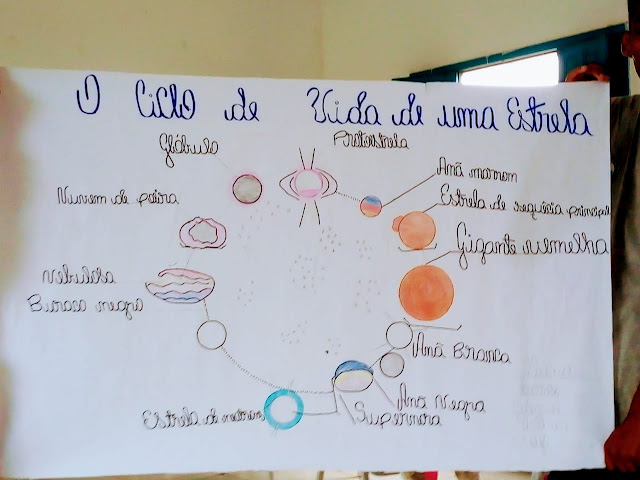 O Ciclo de Vida de uma Estrela
Glóbulo
Protoestrela
Anã marrom
Nuvem de poeira
Estrela de sequência principal
Gigante vermelha
Nebulosa
Buraco negro
Anã Branca
Anã Negra
Estrela de neutrons
Supernova